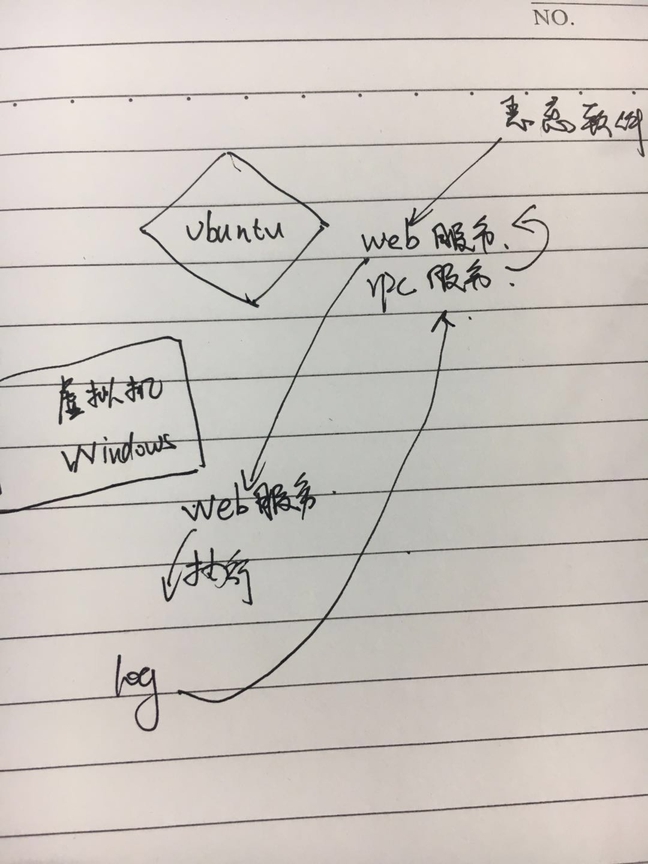 NO.
恶意软件
ubuntu
web 服务
rpc 服务
虚拟机
Windows
web 服务
执行
log